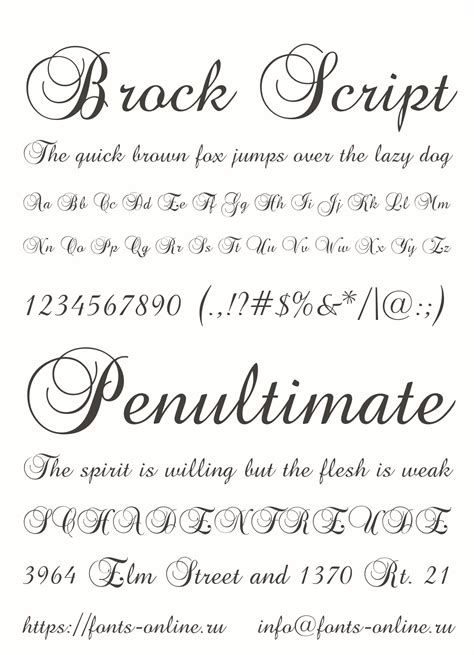 Brock Script
The quick brown fox jumps over the lazy dog
Aa Bb Cc Dd Ee Ff Gg Hh Ii Jj Kk Ll Mm
Nn Oo Pp Qq Rr Ss Tt Uu Vv Ww Xx Yy Zz
1234567890 (.,!?#$%&*/\|@:;)
Penultimate
The spirit is willing but the flesh is weak
SCHADENFREUDE
3964 Elm Street and 1370 Rt. 21
https://fonts-online.ru info@fonts-online.ru